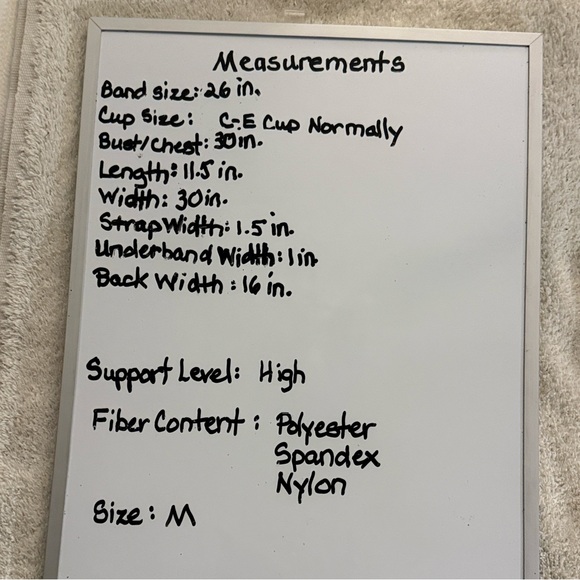 Measurements
Band size: 26 in.
Cup Size: C-E Cup Normally
Bust/Chest: 30in.
Length: 11.5 in.
Width: 30in.
Strap Width: 1.5 in.
Underband Width: 1in
Back Width: 16 in.
Support Level: High
Fiber Content: Polyester
Spandex
Nylon
Size: M